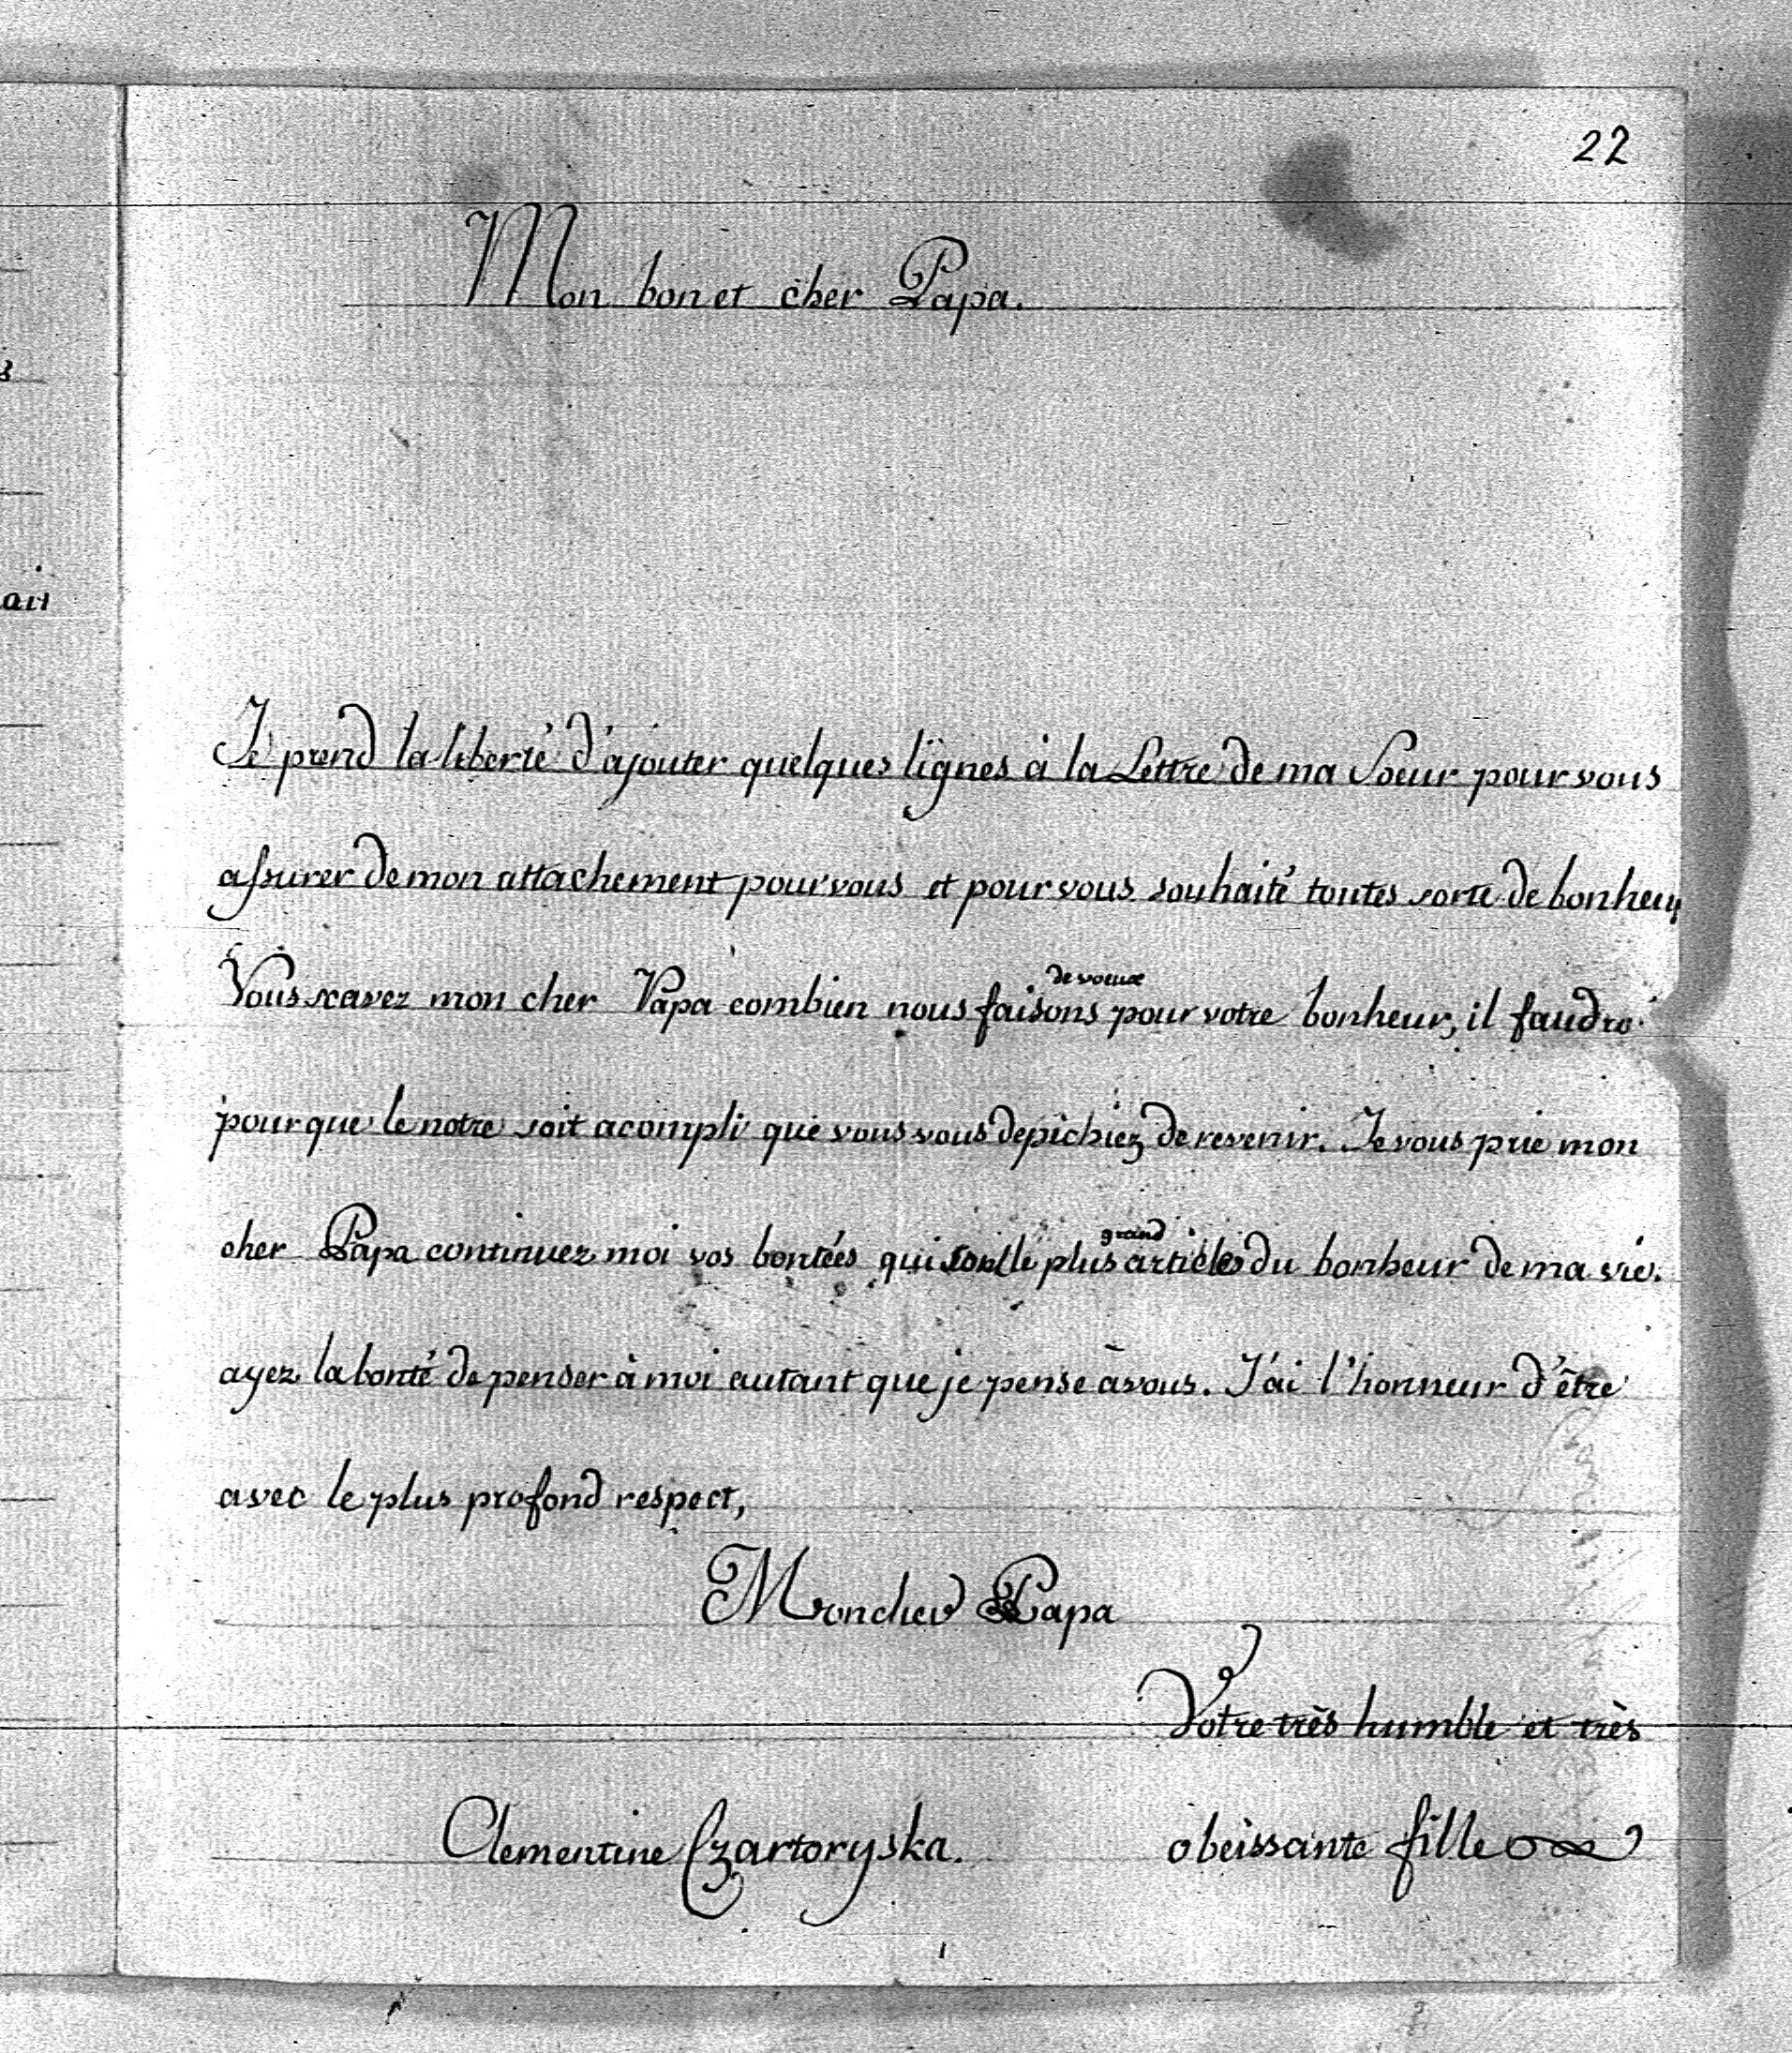 22
Mon bon et cher Papa.
Je prend la liberté d'ajouter quelques lignes à la Lettre de ma Soeur pour vous
assurer de mon attachement pour vous et pour vous souhaité toutes sorte de bonheur
de voeux
Vous scavez mon cher Papa combien nous faisons pour votre bonheur, il faudré
pour que le notre soit acompli que vous vous depichiez de revenir. Je vous prie mon
grand
cher Papa continuez moi vos bontées qui sont le plus articles du bonheur de ma vie.
ayez la bonté de penser à moi autant que je pense à vous. J'ai l'honneur d'être
avec le plus profond respect,
Mon cher Papa
Votre très humble et très
Clementine Czartoryska. obeissante fille